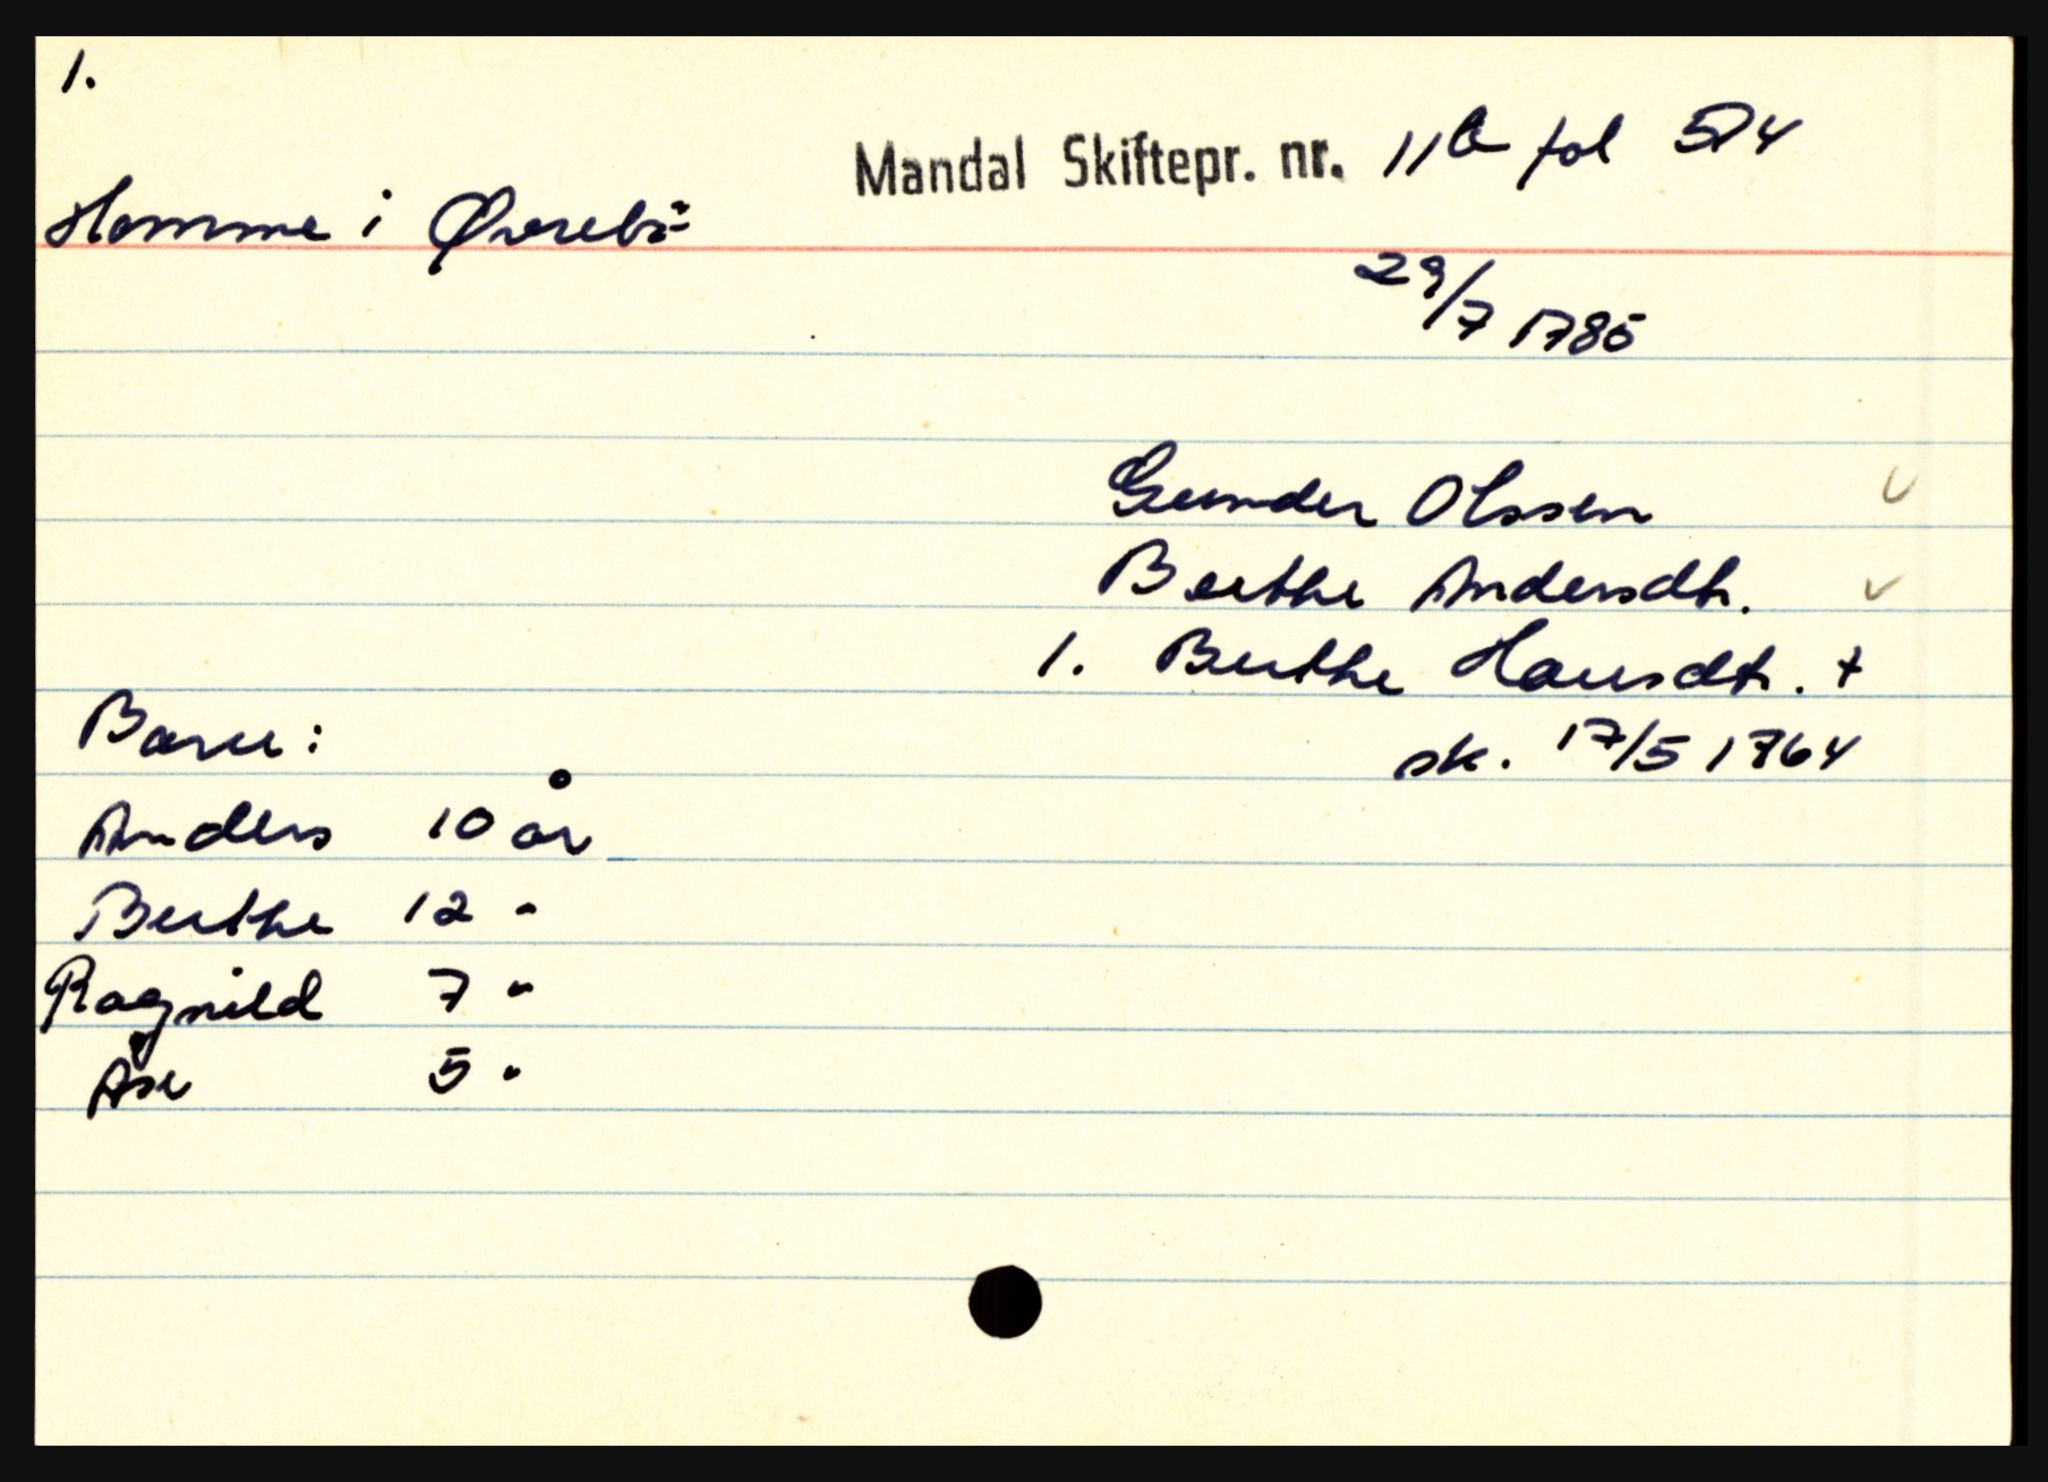 1.
Mandal Skiftepr. nr. 11b fol 574
Homme i Øvrebö
29/7 1785
Gunder Olssen
Berthe Andersdtr.
1. Berthe Hansdtr. +
sk. 17/5 1764
Barn:
Anders 10 år
Berthe 12 "
Ragnild 7 "
Åse 5 "